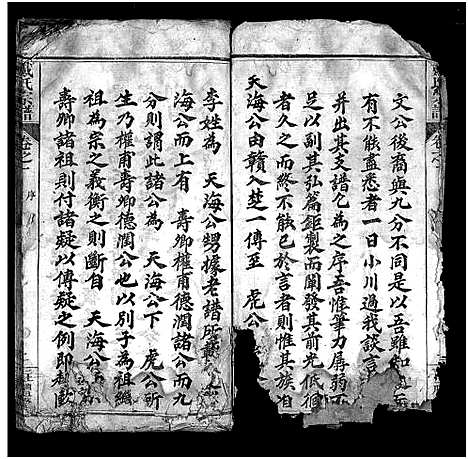 文公後裔與九分不同是以吾雖知
有不能盡悉者一日小川過我談言
並出其支譜乞為之序吾惟筆力孱弱
足以副其弘篇鉅製而闡發其前光低徊
者久之而終不能已於言者則惟其族自
天海公由贛入楚一傳至 虎公
李姓為 天海公甥據老譜所
海公而上有 壽卿權甫德潤諸公而九
分則謂此諸公為 天海公下 虎公所
生乃權甫壽卿德潤公也以別子為祖繼
祖為宗之義衡之則斷自 天海公
壽卿諸祖則付諸疑以傳疑之例即
氏宗譜
卷之一
序